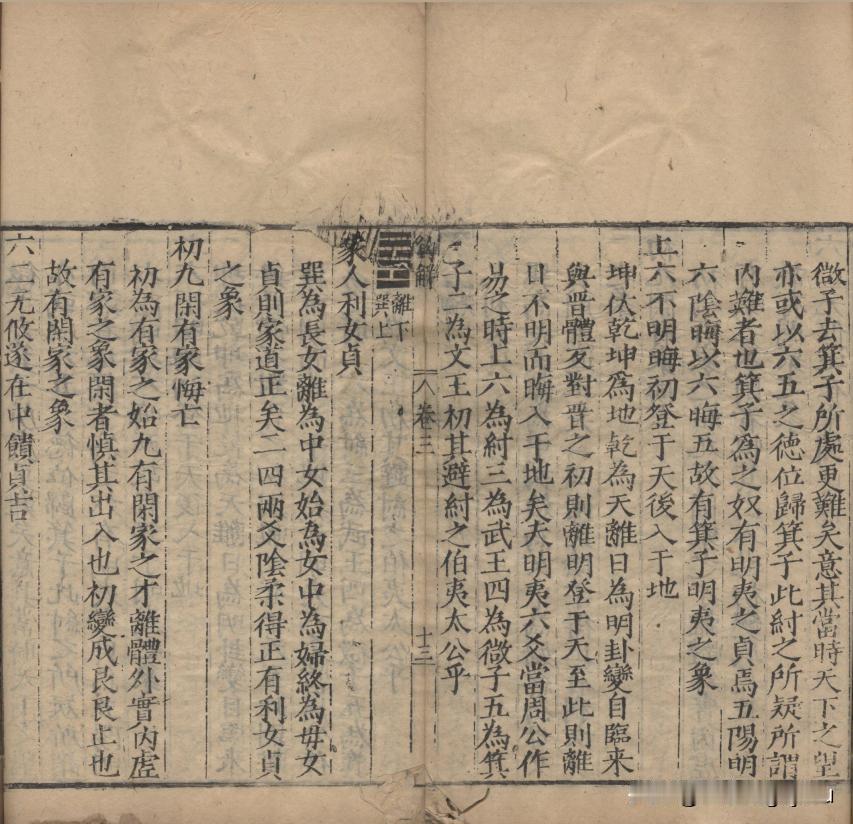 微子去箕子所處更難矣意其當時天下之望
亦或以六五之德位歸箕子此紂之所疑所謂
内難者也箕子為之奴有明夷之貞焉五陽明
六陰晦以六晦五故有箕子明夷之象
上六不明晦初登于天後入于地
坤伏乾坤為地乾為天離日為明卦變自臨來
與晉體反對晉之初則離明登于天至此則離
日不明而晦入于地矣夫明夷六爻當周公作
易之時上六為紂三為武王四為微子五為箕
子二為文王初其避紂之伯夷太公乎
卷三
十三
離下
巽上
家人利女貞
巽為長女離為中女始為女中為婦終為毋女
貞則家道正矣二四兩爻陰柔得正有利女貞
之象
初九閑有家悔亡
初為有家之始九有閑家之才離體外實內虛
有家之象閑者慎其出入也初變成艮艮止也
故有閑家之象
六二无攸遂在中饋貞吉